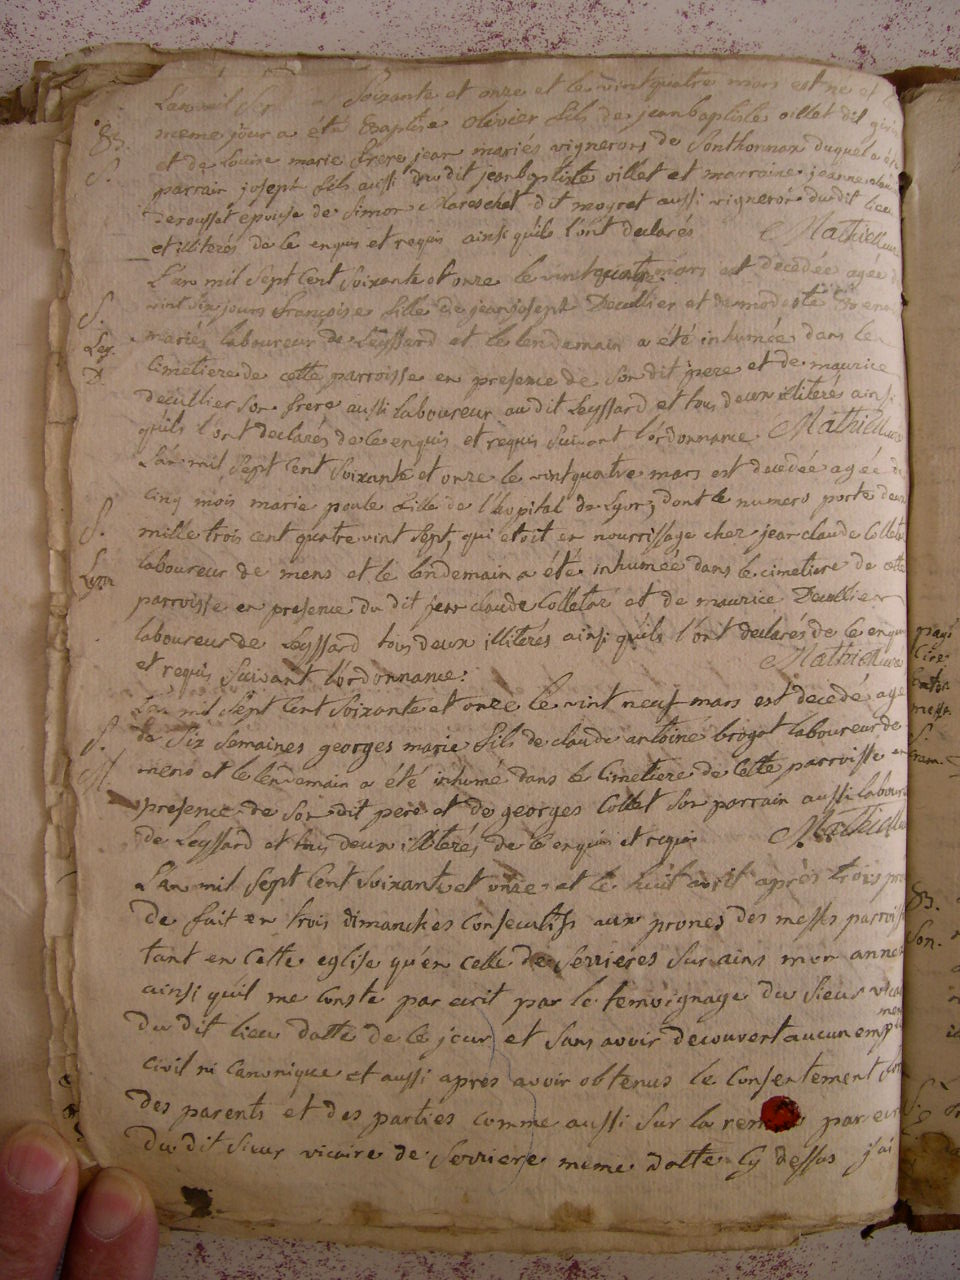 L'an mil Sep Soixante et onze et le vint quatre mars est ne et le
meme jour a été Baptisé olivier fils de jean baptiste villet dit
et de Louise marie frere jean mariés vignerons de Sonthonnax duquel a été
parrain joseph fils aussi du dit jean baptiste villet et marraine jeanne
derousset epouse de Simon Mareschet dit moyret aussi vigneron du dit lieu
et illiterés de ce enquis et requis ainsi quils l'ont declarés Mathieu
L'an mil Sept Cent Soixante et onze le vint quatre mars est decedée agée de
vint six jours françoise fille de jean joseph Decullier et de modeste
mariés laboureur de Leyssard et le lendemain a été inhumée dans le
Cimetiere de cette parroisse en presence de Son dit pere et de maurice
decullier Son frere aussi laboureur au dit Leyssard et tous deux illiteré ainsi
quils l'ont declarés de ce enquis et requis Suivant l'ordonnance Mathieu
L'an mil Sept Cent Soixante et onze le vint quatre mars est decedée agée de
Cinq mois marie paule fille de l'hopital de Lyon, dont le numero porte deux
mille trois cent quatre vint Sept, qui etoit en nourrissage chez jean claude Colletaz
laboureur de mens et le lendemain a été inhumée dans le cimetiere de cette
parroisse en presence du dit jean claude Colletaz et de maurice Decullier
laboureur de Leyssard tous deux illiterés ainsi quils l'ont declarés de ce enquis
et requis Suivant l'ordonnance: Mathieu
L'an mil Sept Cent Soixante et onze le vint neuf mars est decedé agé
de Six Semaines georges marie fils de claude antoine brogat laboureur de
mens et le lendemain a été inhumé dans le Cimetiere de Cette parroisse en
presence de Son dit pere et de georges Collet Son parrain aussi labour
de Leyssard et tous deux illiterés, de ce enquis et requis Mathieu
L'an mil Sept Cent Soixante et onze et le huit avril après trois
de fait en trois dimanches Consecutifs aux prones des messes parroiss
tant en Cette eglise qu'en celle de Serrieres Sur ains mon annexe
ainsi quil me Conste par ecrit par le temoignage du Sieur vicaire
du dit lieu datte de ce jour et Sans avoir decouvert aucun emp
civil ni Canonique et aussi apres avoir obtenus le Consentement
des parents et des parties comme aussi Sur la par
du dit Sieur vicaire de Serriere meme datte Cy dessus j'ai